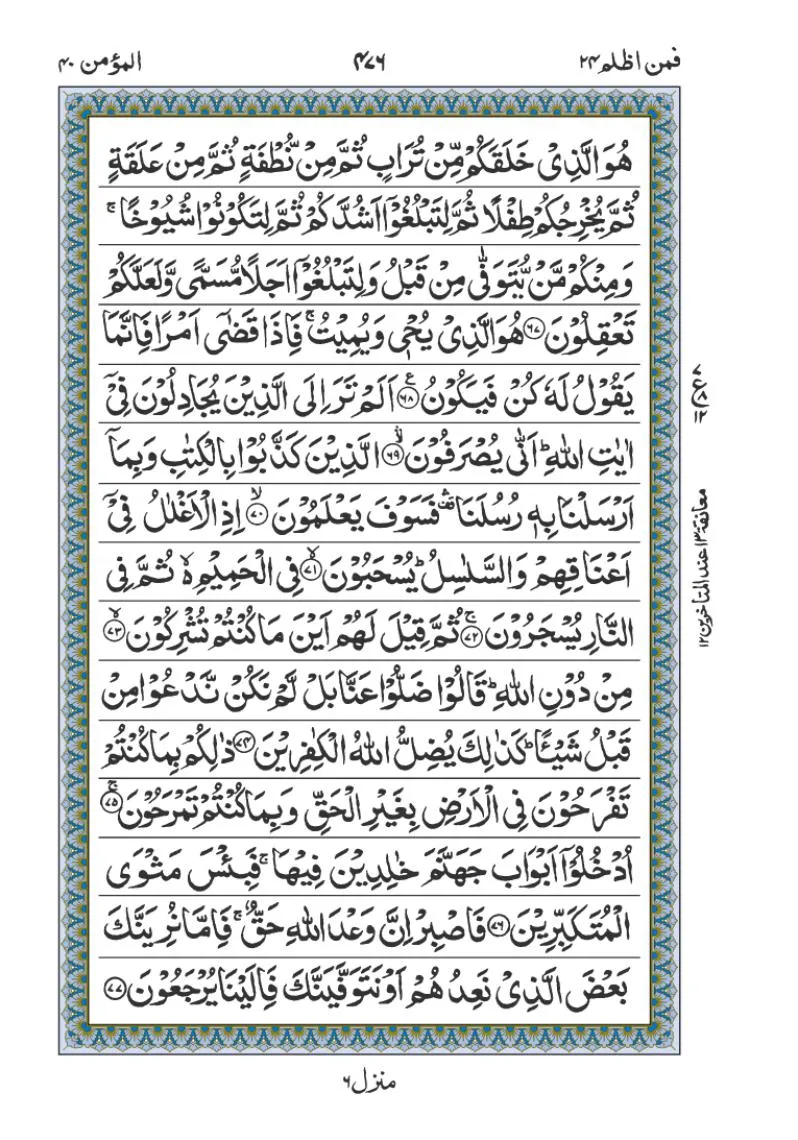 فمن اظلم ۲۴
۴۷۶
المؤمن ۴۰
هُوَ الَّذِىْ خَلَقَكُمْ مِّنْ تُرَابٍ ثُمَّ مِنْ نُّطْفَةٍ ثُمَّ مِنْ عَلَقَةٍ
ثُمَّ يُخْرِجُكُمْ طِفْلًا ثُمَّ لِتَبْلُغُوْۤا اَشُدَّكُمْ ثُمَّ لِتَكُوْنُوْا شُيُوْخًا ۚ
وَمِنْكُمْ مَّنْ يُّتَوَفّٰى مِنْ قَبْلُ وَلِتَبْلُغُوْۤا اَجَلًا مُّسَمًّى وَّلَعَلَّكُمْ
تَعْقِلُوْنَ ﴿۶۷﴾ هُوَ الَّذِىْ يُحْىٖ وَيُمِيْتُ ۚ فَاِذَا قَضٰٓى اَمْرًا فَاِنَّمَا
يَقُوْلُ لَهٗ كُنْ فَيَكُوْنُ ﴿۶۸﴾ ع اَلَمْ تَرَ اِلَى الَّذِيْنَ يُجَادِلُوْنَ فِىْۤ
اٰيٰتِ اللّٰهِ ؕ اَنّٰى يُصْرَفُوْنَ ﴿۶۹﴾ ۛۙ الَّذِيْنَ كَذَّبُوْا بِالْكِتٰبِ وَبِمَاۤ
اَرْسَلْنَا بِهٖ رُسُلَنَا ۛ۫ فَسَوْفَ يَعْلَمُوْنَ ﴿۷۰﴾ ۙ اِذِ الْاَغْلٰلُ فِىْۤ
اَعْنَاقِهِمْ وَالسَّلٰسِلُ ؕ يُسْحَبُوْنَ ﴿۷۱﴾ ۙ فِى الْحَمِيْمِ ۙ ثُمَّ فِى
النَّارِ يُسْجَرُوْنَ ﴿۷۲﴾ ۚ ثُمَّ قِيْلَ لَهُمْ اَيْنَ مَا كُنْتُمْ تُشْرِكُوْنَ ﴿۷۳﴾ ۙ
مِنْ دُوْنِ اللّٰهِ ؕ قَالُوْا ضَلُّوْا عَنَّا بَلْ لَّمْ نَكُنْ نَّدْعُوْا مِنْ
قَبْلُ شَيْـًٔا ؕ كَذٰلِكَ يُضِلُّ اللّٰهُ الْكٰفِرِيْنَ ﴿۷۴﴾ ذٰلِكُمْ بِمَا كُنْتُمْ
تَفْرَحُوْنَ فِى الْاَرْضِ بِغَيْرِ الْحَقِّ وَبِمَا كُنْتُمْ تَمْرَحُوْنَ ﴿۷۵﴾ ۚ
اُدْخُلُوْۤا اَبْوَابَ جَهَنَّمَ خٰلِدِيْنَ فِيْهَا ۚ فَبِئْسَ مَثْوَى
الْمُتَكَبِّرِيْنَ ﴿۷۶﴾ فَاصْبِرْ اِنَّ وَعْدَ اللّٰهِ حَقٌّ ۚ فَاِمَّا نُرِيَنَّكَ
بَعْضَ الَّذِىْ نَعِدُهُمْ اَوْ نَتَوَفَّيَنَّكَ فَاِلَيْنَا يُرْجَعُوْنَ ﴿۷۷﴾
۷ ع ۸ ۱۲
معانقة ۱۳ عند المتاخرين ۱۲
منزل ۶